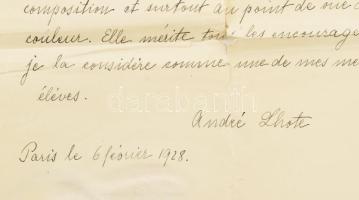 composition et surtout au point de vue
couleur. Elle mérite tous les encourage
je la considère comme une de mes me
élèves.
André Lhote
Paris le 6 février 1928.
darabanth